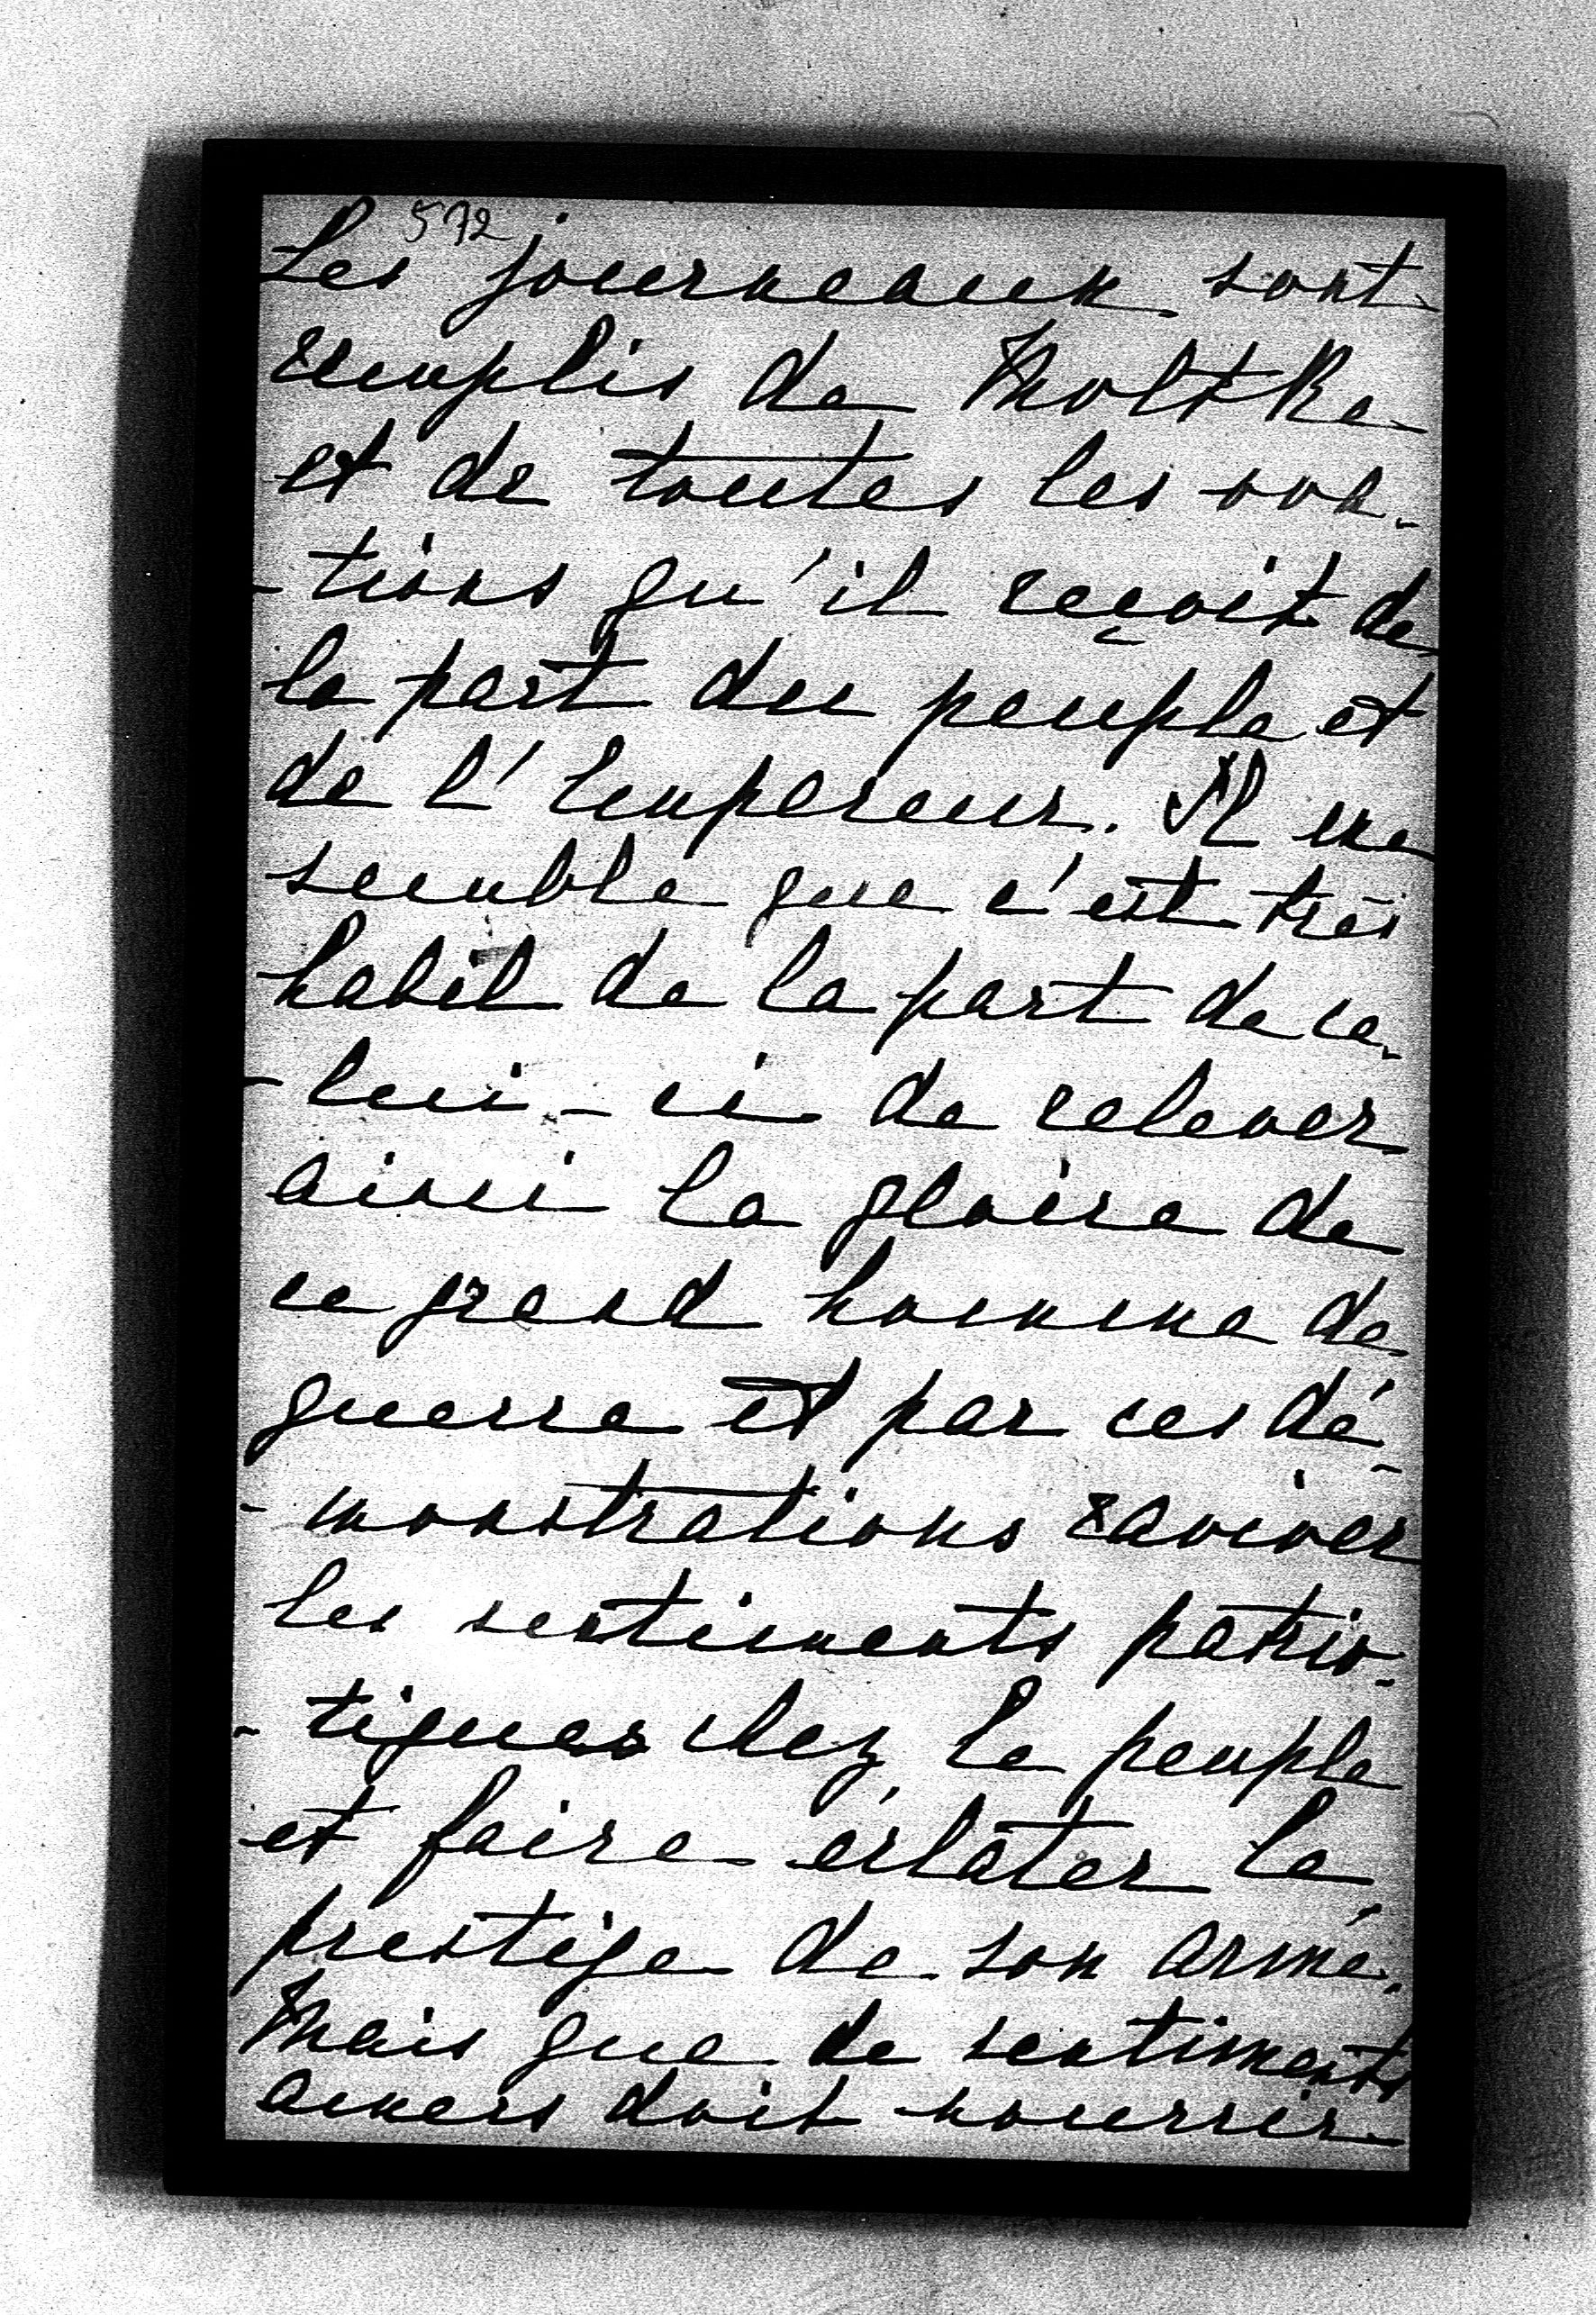 572
Les journeaux sont
remplis de Moltke
et de toutes les ova-
-tions qu'il reçoit de
la part du peuple et
de l'Empereur. Il me
semble que c'est très
habil de la part de ce-
-lui-ci de relever
ainsi la gloire de
ce grand homme de
guerre et par ces dé-
-monstrations raviver
les sentiments patrio-
-tiques chez le peuple
et faire éclater le
prestige de son armé.
Mais que de sentiments
amers doit nourrir